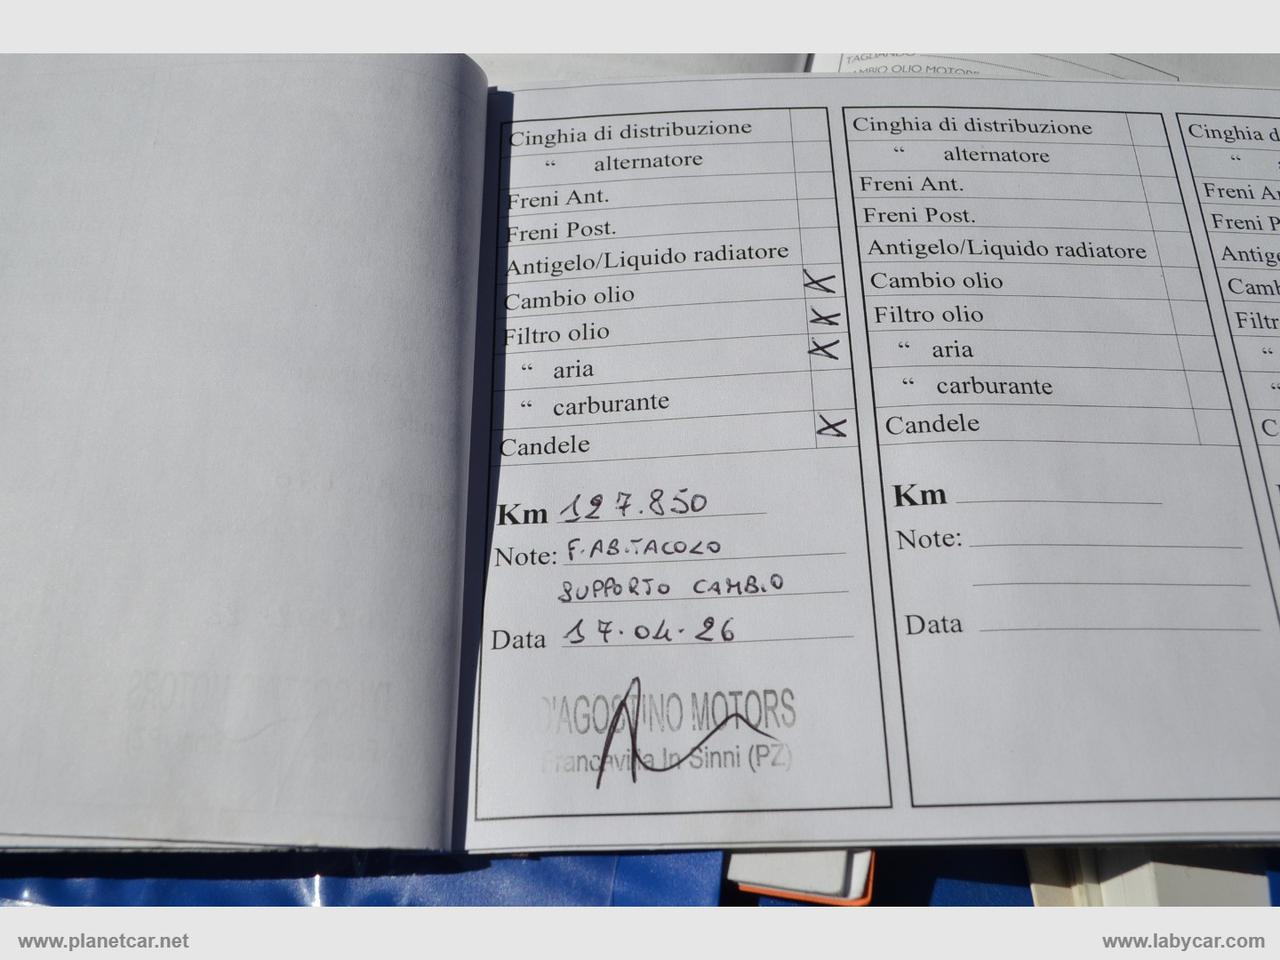 TAGLIANDO
CAMBIO OLIO MOTORE
Cinghia di distribuzione
“ alternatore
Freni Ant.
Freni Post.
Antigelo/Liquido radiatore
Cambio olio X
Filtro olio X
“ aria X
“ carburante
Candele X
Km 127.850
Note: F. ABITACOLO
SUPPORTO CAMBIO
Data 17.04.26
D'AGOSTINO MOTORS
Francavilla In Sinni (PZ)
Cinghia di distribuzione
“ alternatore
Freni Ant.
Freni Post.
Antigelo/Liquido radiatore
Cambio olio
Filtro olio
“ aria
“ carburante
Candele
Km
Note:
Data
Cinghia d
“
Freni An
Freni P
Antige
Camb
Filtr
“
“
C
www.planetcar.net
www.labycar.com